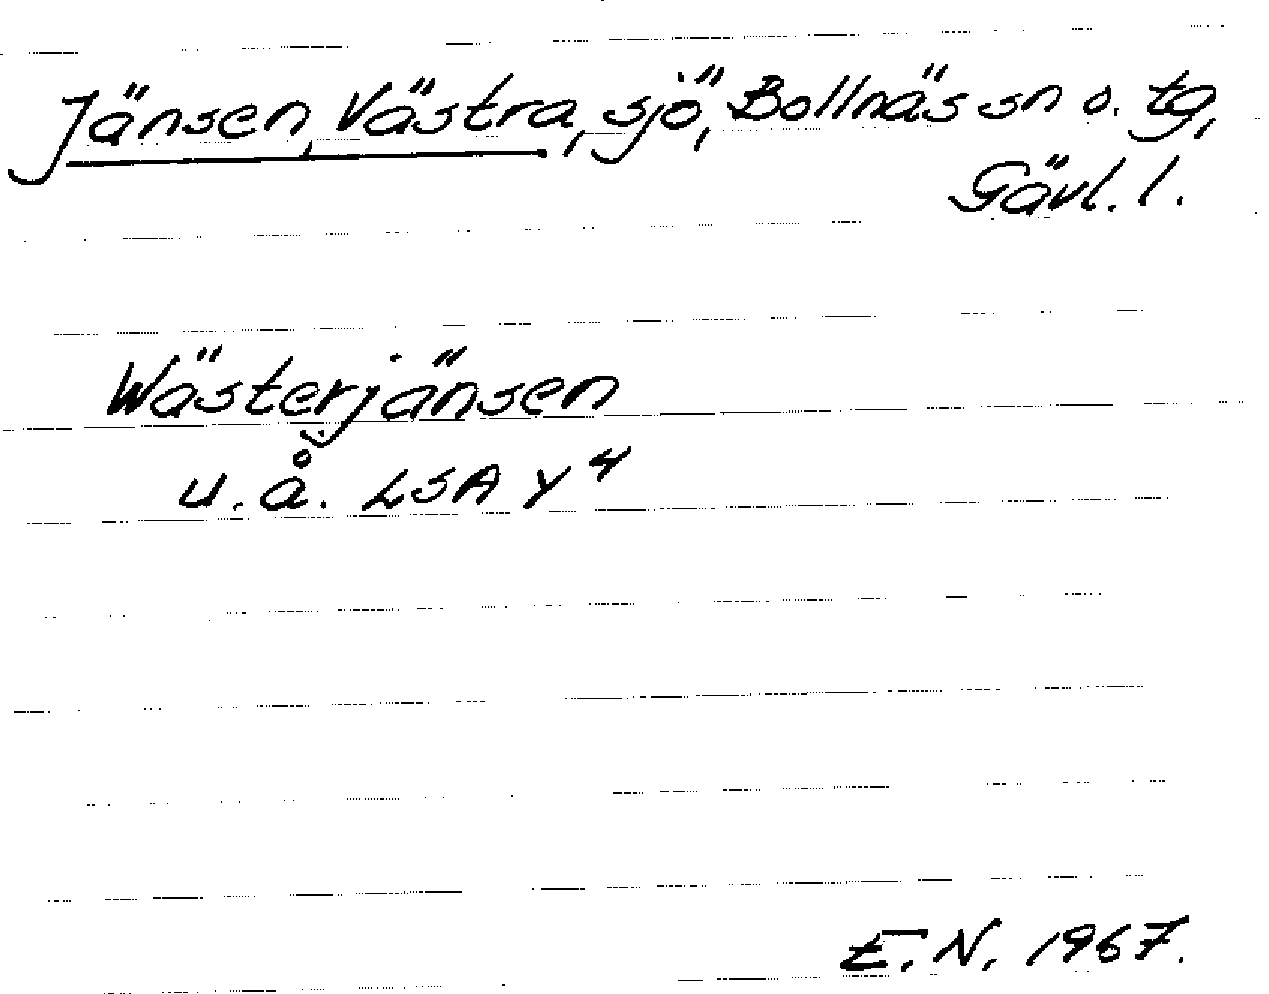 Jänsen, Västra, sjö, Bollnäs sn o. tg,
Gävl. l.
Wästerjänsen
u. å. LSA Y 4
E. N. 1967.